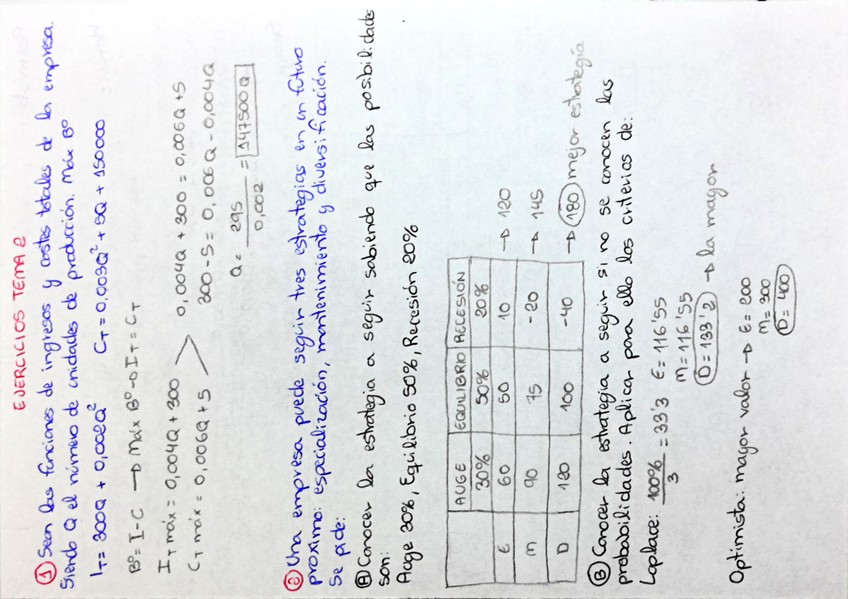 EJERCICIOS TEMA 2
① Sean las funciones de ingresos y costes totales de la empresa.
Siendo Q el número de unidades de producción. Máx Bº
IT = 300Q + 0,002Q² CT = 0,003Q² + 5Q + 150000
Bº = I - C → Máx Bº → IT = CT
IT máx = 0,004Q + 300
CT máx = 0,006Q + 5
0,004Q + 300 = 0,006Q + 5
300 - 5 = 0,006Q - 0,004Q
Q = 295 / 0,002 = 147500Q
② Una empresa puede seguir tres estrategias en un futuro
próximo: especialización, mantenimiento y diversificación.
Se pide:
Ⓐ Conocer la estrategia a seguir sabiendo que las posibilidades
son:
Auge 30%, Equilibrio 50%, Recesión 20%
AUGE EQUILIBRIO RECESIÓN
30% 50% 20%
E 60 50 10 → 120
M 90 75 -20 → 145
D 120 100 -40 → 180 mejor estrategia
Ⓑ Conocer la estrategia a seguir si no se conocen las
probabilidades. Aplicar para ello los criterios de:
Laplace: 100% / 3 = 33'3 E = 116'55
M = 116'55
D = 133'2 → la mayor
Optimista: mayor valor → E = 200
M = 300
D = 400